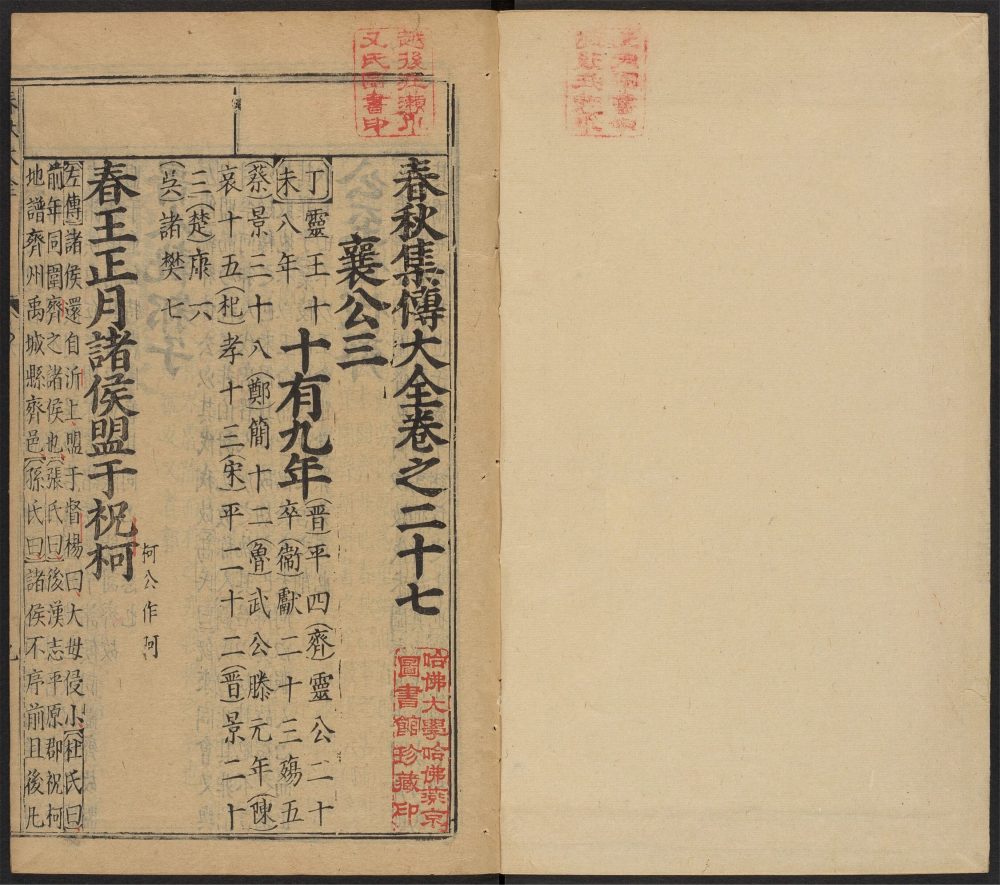 春秋集傳大全卷之二十七
襄公三
丁未
靈王十八年
十有九年
晉平四齊靈公二十
卒衞獻二十三殤五
蔡景三十八鄭簡十二曹武公滕元年陳
哀十五杞孝十三宋平二十二秦景二十
三楚康六
吳諸樊七
春王正月諸侯盟于祝柯
柯公作阿
左傳諸侯還自沂上盟于督楊曰大毋侵小杜氏曰
前年同圍齊之諸侯也張氏曰後漢志平原郡祝柯
地譜齊州禹城縣齊邑孫氏曰諸侯不序前目後凡
哈佛大學哈佛燕京
圖書館珍藏印